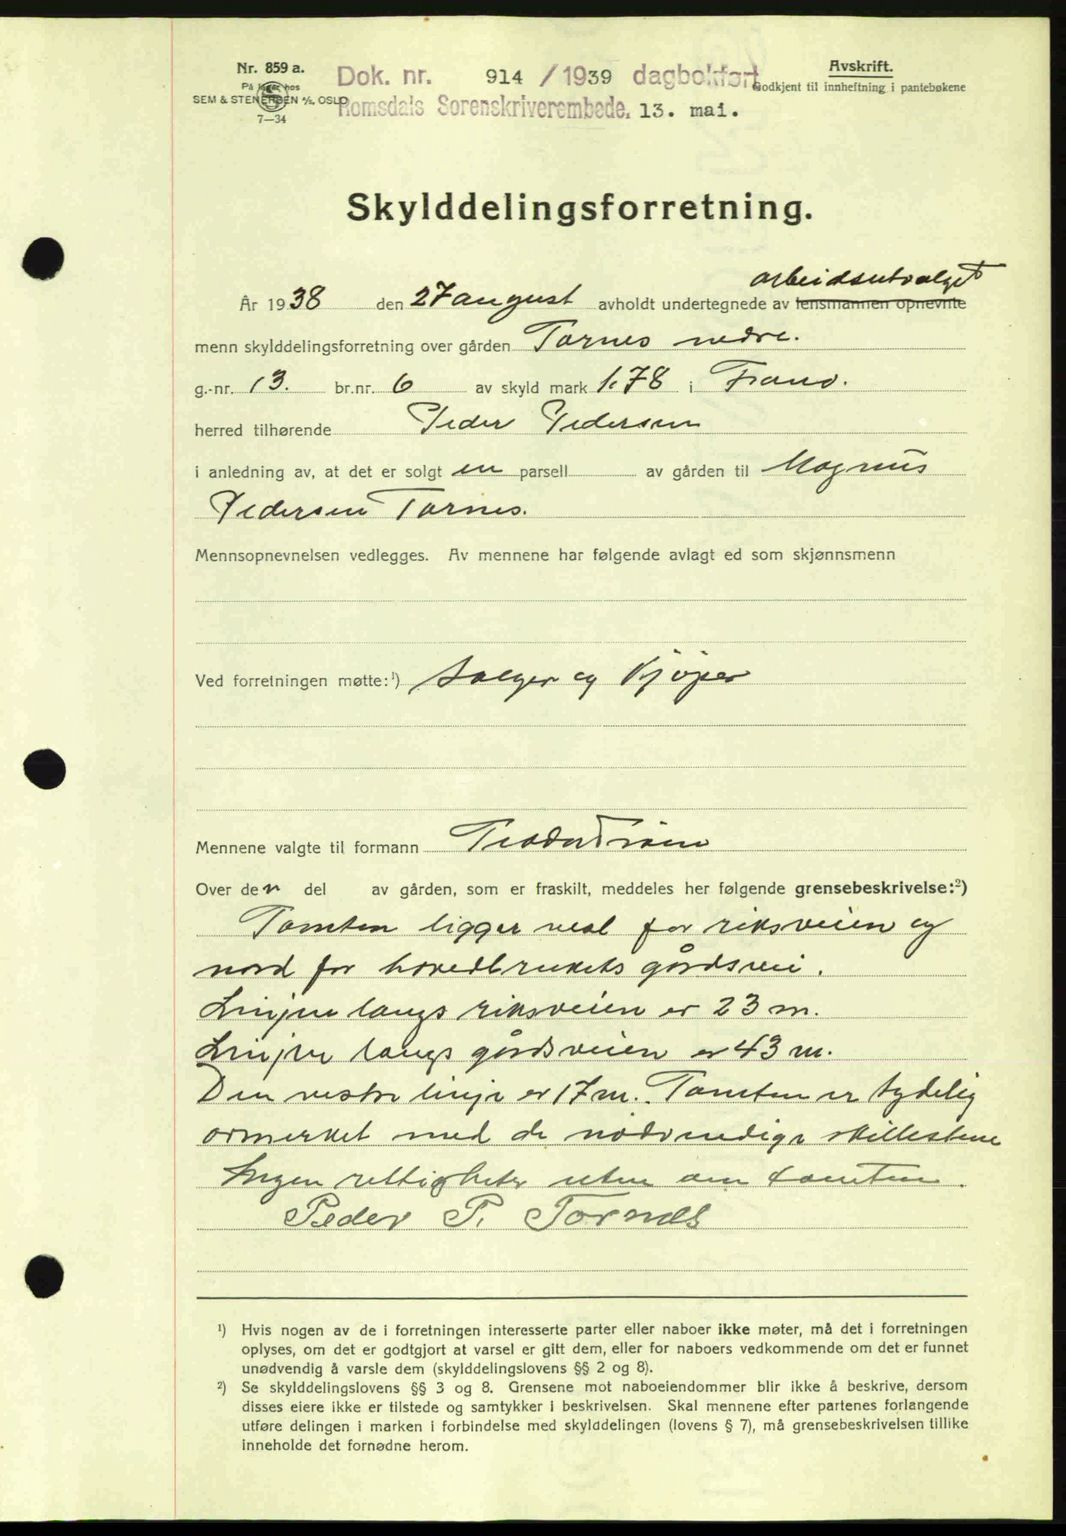 Nr. 859 a.
På lager hos
SEM & STENERSEN A/S, OSLO
7—34
Dok. nr. 914 / 1939 dagbokført
Romsdals Sorenskriverembede. 13. mai.
Avskrift.
Godkjent til innheftning i pantebøkene
Skylddelingsforretning.
arbeidsutvalget
År 1938 den 27 august avholdt undertegnede av lensmannen opnevnte
menn skylddelingsforretning over gården Tornes nedre.
g.-nr. 13. br.nr. 6 av skyld mark 1.78 i Fræna.
herred tilhørende Peder Pedersen
i anledning av, at det er solgt en parsell av gården til Magnus
Pedersen Tornes.
Mennsopnevnelsen vedlegges. Av mennene har følgende avlagt ed som skjønnsmenn
Ved forretningen møtte:¹) Selger og Kjøper
Mennene valgte til formann
Over den del av gården, som er fraskilt, meddeles her følgende grensebeskrivelse:²)
Tomten ligger vest for riksveien og
nord for hovedbrukets gårdsvei.
Linjen langs riksveien er 23 m.
Linjen langs gårdsveien er 43 m.
Den vestre linje er 17 m. Tomten er tydelig
opmerket med de nødvendige skillestene
Ingen rettigheter uten om tomten.
Peder P. Tornes
¹) Hvis nogen av de i forretningen interesserte parter eller naboer ikke møter, må det i forretningen
oplyses, om det er godtgjort at varsel er gitt dem, eller for naboers vedkommende om det er funnet
unødvendig å varsle dem (skylddelingslovens §§ 2 og 8).
²) Se skylddelingslovens §§ 3 og 8. Grensene mot naboeiendommer blir ikke å beskrive, dersom
disses eiere ikke er tilstede og samtykker i beskrivelsen. Skal mennene efter partenes forlangende
utføre delingen i marken i forbindelse med skylddelingen (lovens § 7), må grensebeskrivelsen tillike
inneholde det fornødne herom.